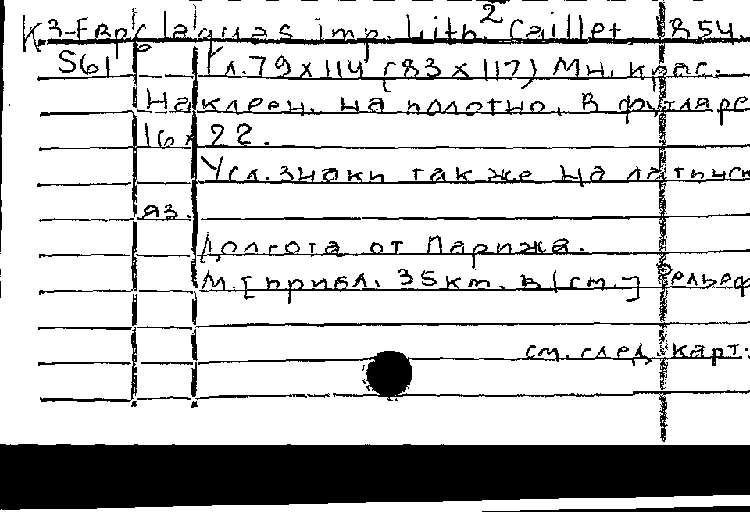 К3-Евр/6 Jacques imp. Lith. Caillet, 1854.
2
561 1 л. 79 x 114 (83 x 117) Мн. крас.
Наклеен. на полотно, в футляре
16 x 22.
Усл. знаки также на латинск
яз.
Долгота от Парижа.
М. [прибл. 35 км. в 1 см.] Рельеф
см. след. карт.